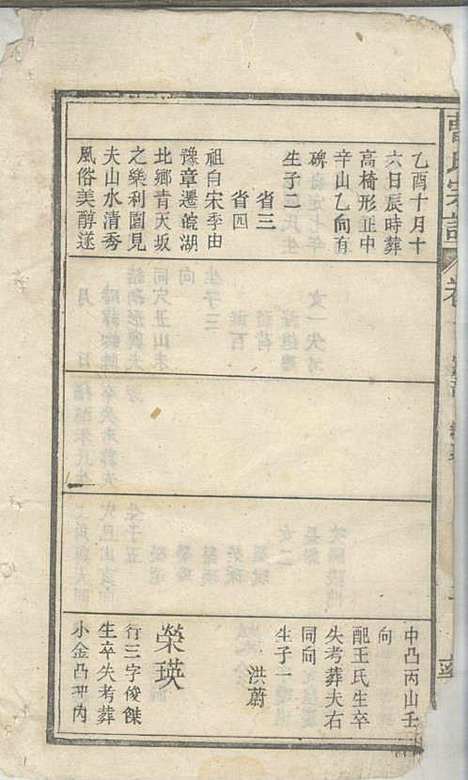 乙酉十月十
六日辰時葬
高椅形正中
辛山乙向有
碑
生子二
省三
省四
祖自宋季由
豫章遷皖湖
北鄉青天坂
之樂利園見
夫山水清秀
風俗美醇遂
中凸丙山壬
向
配王氏生卒
失考葬夫右
同向
生子一
洪蔚
榮瑛
行三字俊傑
生卒失考葬
小金凸 内
氏宗譜
卷一